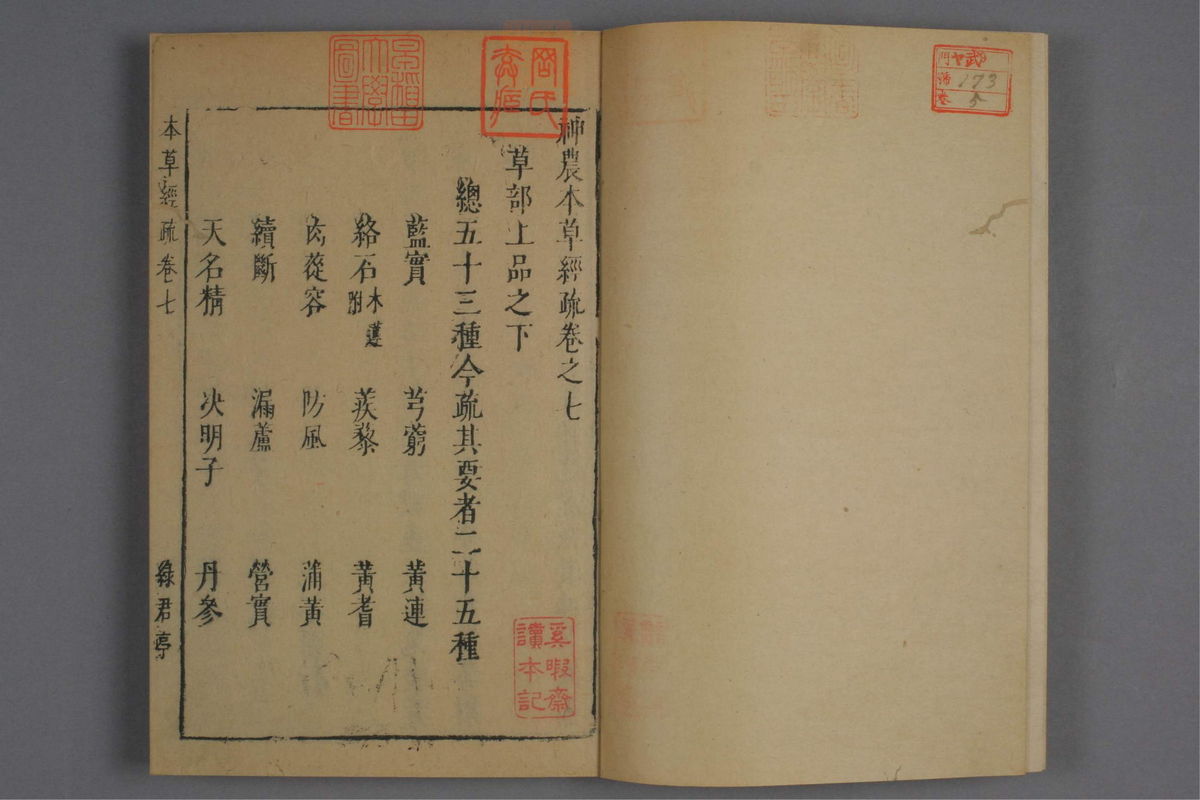 神農本草經疏卷之七
草部上品之下
總五十三種今疏其要者二十五種
藍實 芎藭 黃連
絡石 木蓮附 蒺藜 黃耆
肉蓯容 防風 蒲黃
續斷 漏蘆 營實
天名精 决明子 丹參
本草經疏卷七 綠君亭
奚暇齋
讀本記
早稻田
大學
圖書
173
5